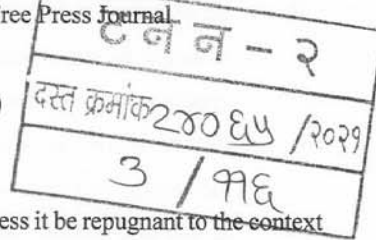 ree Press Journal.
ट न न - २
दस्त क्रमांक २४०६५ /२०२१
3 / ११६
ess it be repugnant to the context